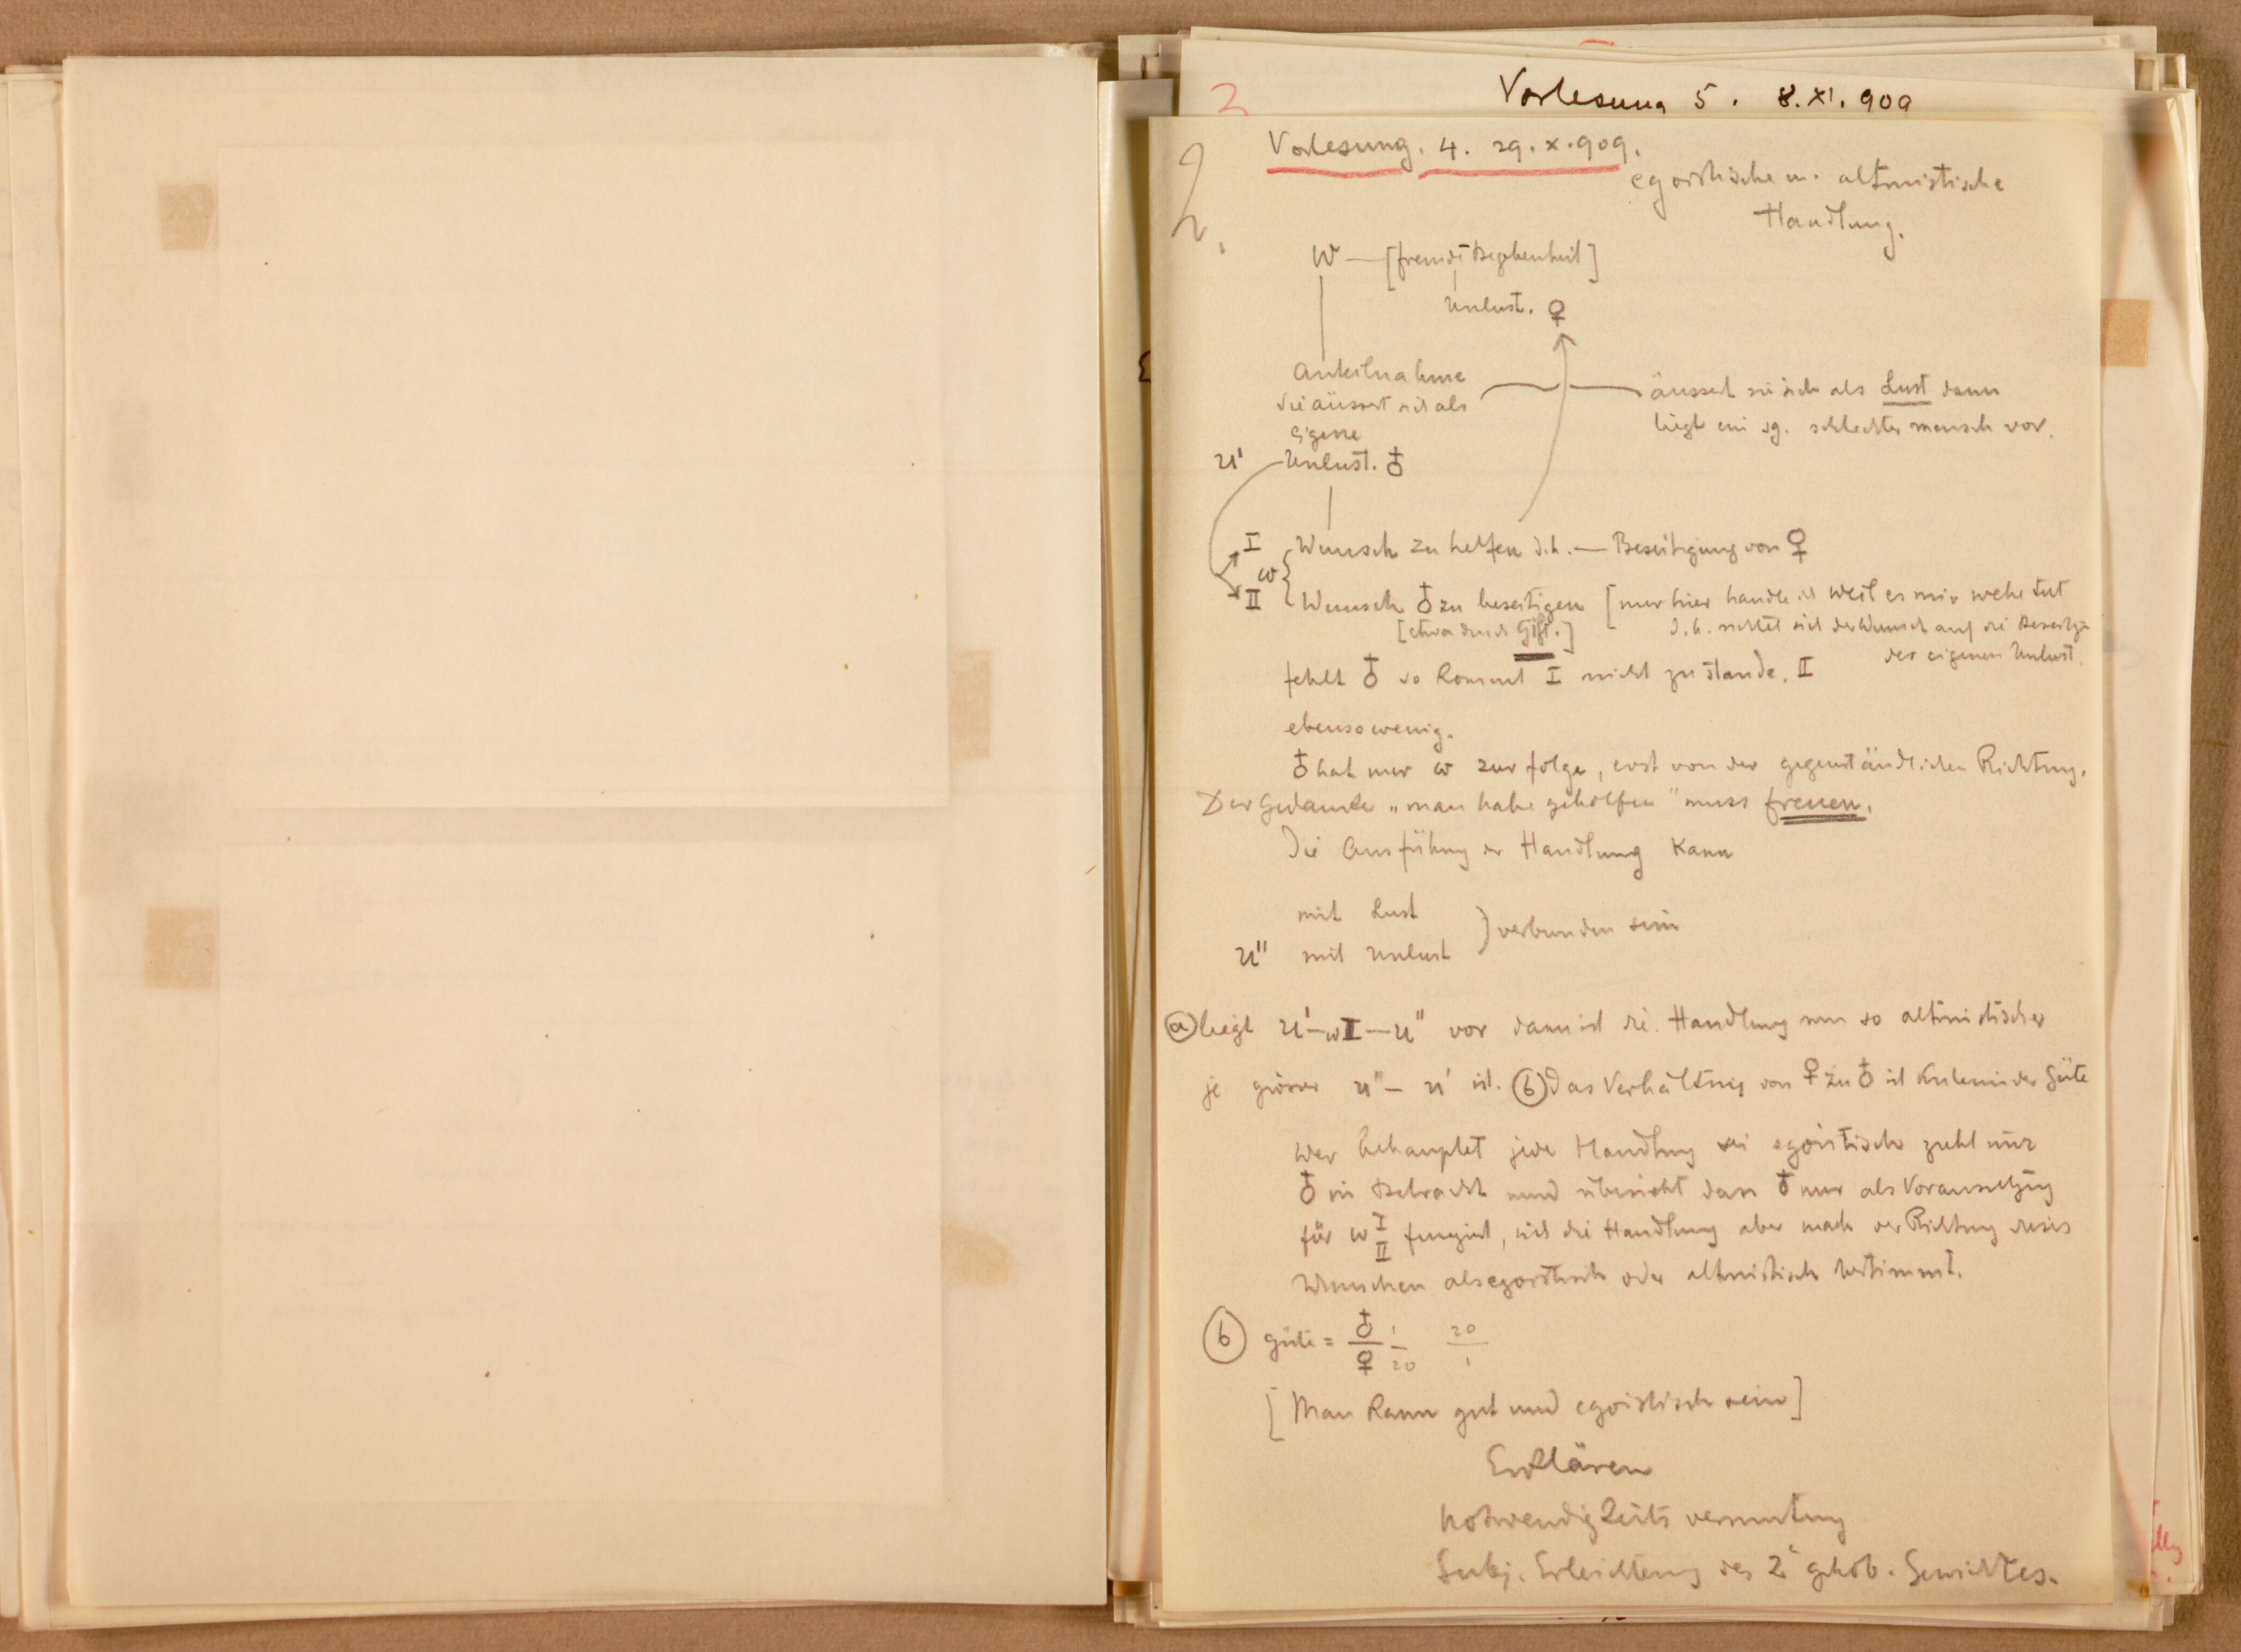 3
Vorlesung 5. 8.XI.909
2.
Vorlesung. 4. 29.X.909.
egoistische u. altruistische
Handlung.
W — [fremde Begebenheit]
Unlust. ♀
Anteilnahme
die äussert sich als
eigene
U' Unlust. ♁
äussert sie sich als Lust dann
liegt ein sg. schlechter mensch vor.
I Wunsch zu helfen d.h. — Beseitigung von ♀
w
II Wunsch ♁ zu beseitigen [nur hier handle ich weil es mir wehe tut
[etwa durch Gift.] d.h. richtet sich der Wunsch auf die Beseitig
der eigenen Unlust.
fehlt ♁ so kommt I nicht zustande. II
ebensowenig.
♁ hat nur w zur folge, erst von der gegenständlichen Richtung.
Der Gedanke „man habe geholfen" muss freuen.
Die Ausführung der Handlung kann
mit Lust
U'' mit Unlust ) verbunden sein
(a) liegt U'—wI—U'' vor dann ist die Handlung um so altruistischer
je grösser U''—U' ist. (b) Das Verhältnis von ♀ zu ♁ ist Kriterium der Güte
Wer behauptet jede Handlung sei egoistisch zieht nur
♁ in Betracht und übersieht dass ♁ nur als Voraussetzung
für w I II fungiert, sich die Handlung aber nach der Richtung dieses
Wunsches als egoistisch oder altruistisch bestimmt.
(b) Güte = ♁/♀ 1/20 20/1
[Man kann gut und egoistisch sein]
Erklären
Notwendigkeits vermutung
Subj. Erleichterung des 2 gehob. Gewichtes.